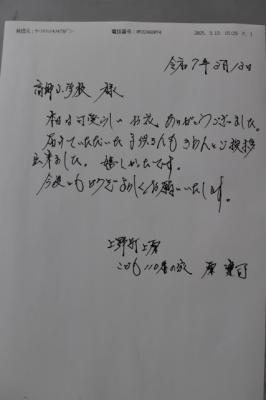 2025. 3.13 15:09
電話番号:
令和7年3月13日
小学校 様
本日は可愛らしいお花、ありがとうございました。
届けていただいた子供さんもきちんとご挨拶
出来ました。嬉しかったです。
今後ともどうぞよろしくお願いいたします。
上野町上原
こども110番の家 原